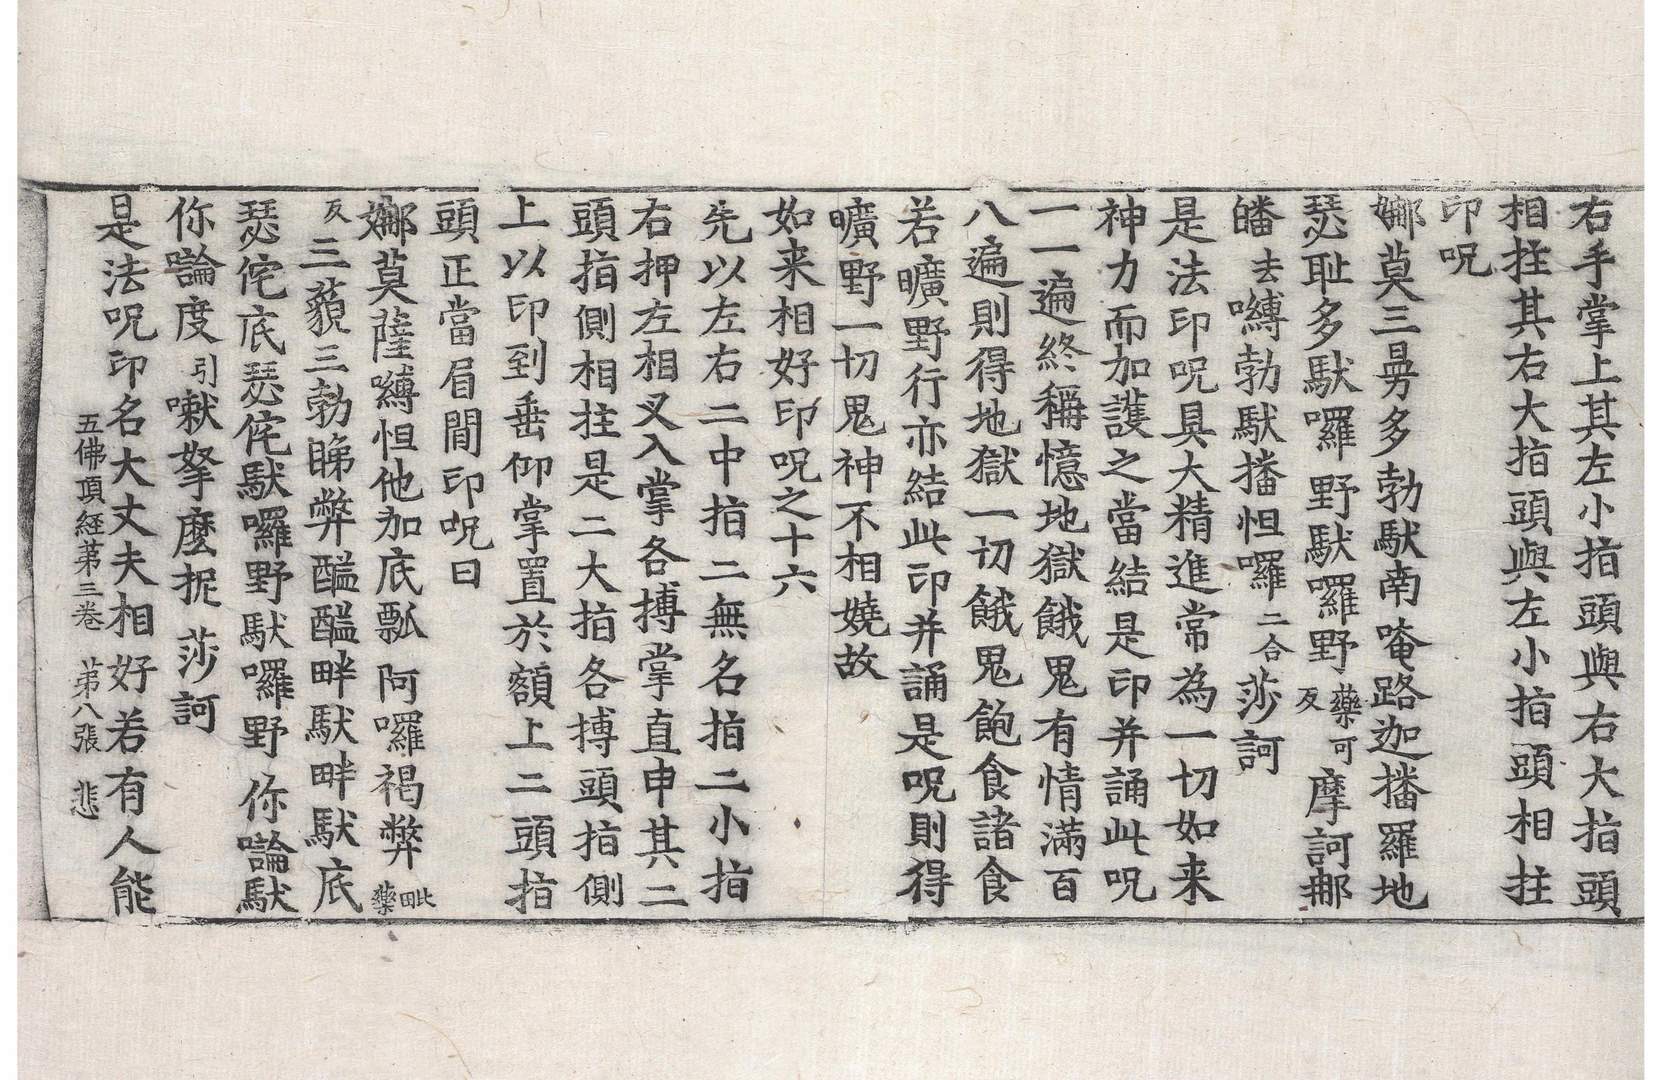 右手掌上其左小指頭與右大指頭
相拄其右大指頭與左小指頭相拄
印呪
娜莫三曼多勃馱南唵路迦播羅地
瑟耻多馱囉野馱囉野藥可反摩訶娜
皤去嚩勃馱播怛囉二合莎訶
是法印呪具大精進常為一切如来
神力而加護之當結是印并誦此呪
一一遍終稱憶地獄餓鬼有情滿百
八遍則得地獄一切餓鬼飽食諸食
若曠野行亦結此印并誦是呪則得
曠野一切鬼神不相嬈故
如来相好印呪之十六
先以左右二中指二無名指二小指
右押左相叉入掌各搏掌直申其二
頭指側相拄是二大指各搏頭指側
上以印到垂仰掌置於額上二頭指
頭正當眉間印呪曰
娜莫薩嚩怛他加底瓢阿囉褐弊毗藥
反三藐三勃睇弊醯醯畔馱畔馱底
瑟侘底瑟侘馱囉野馱囉野你論馱
你論度引嗽拏麼抳莎訶
是法呪印名大丈夫相好若有人能
五佛頂經苐三卷 苐八張 悲